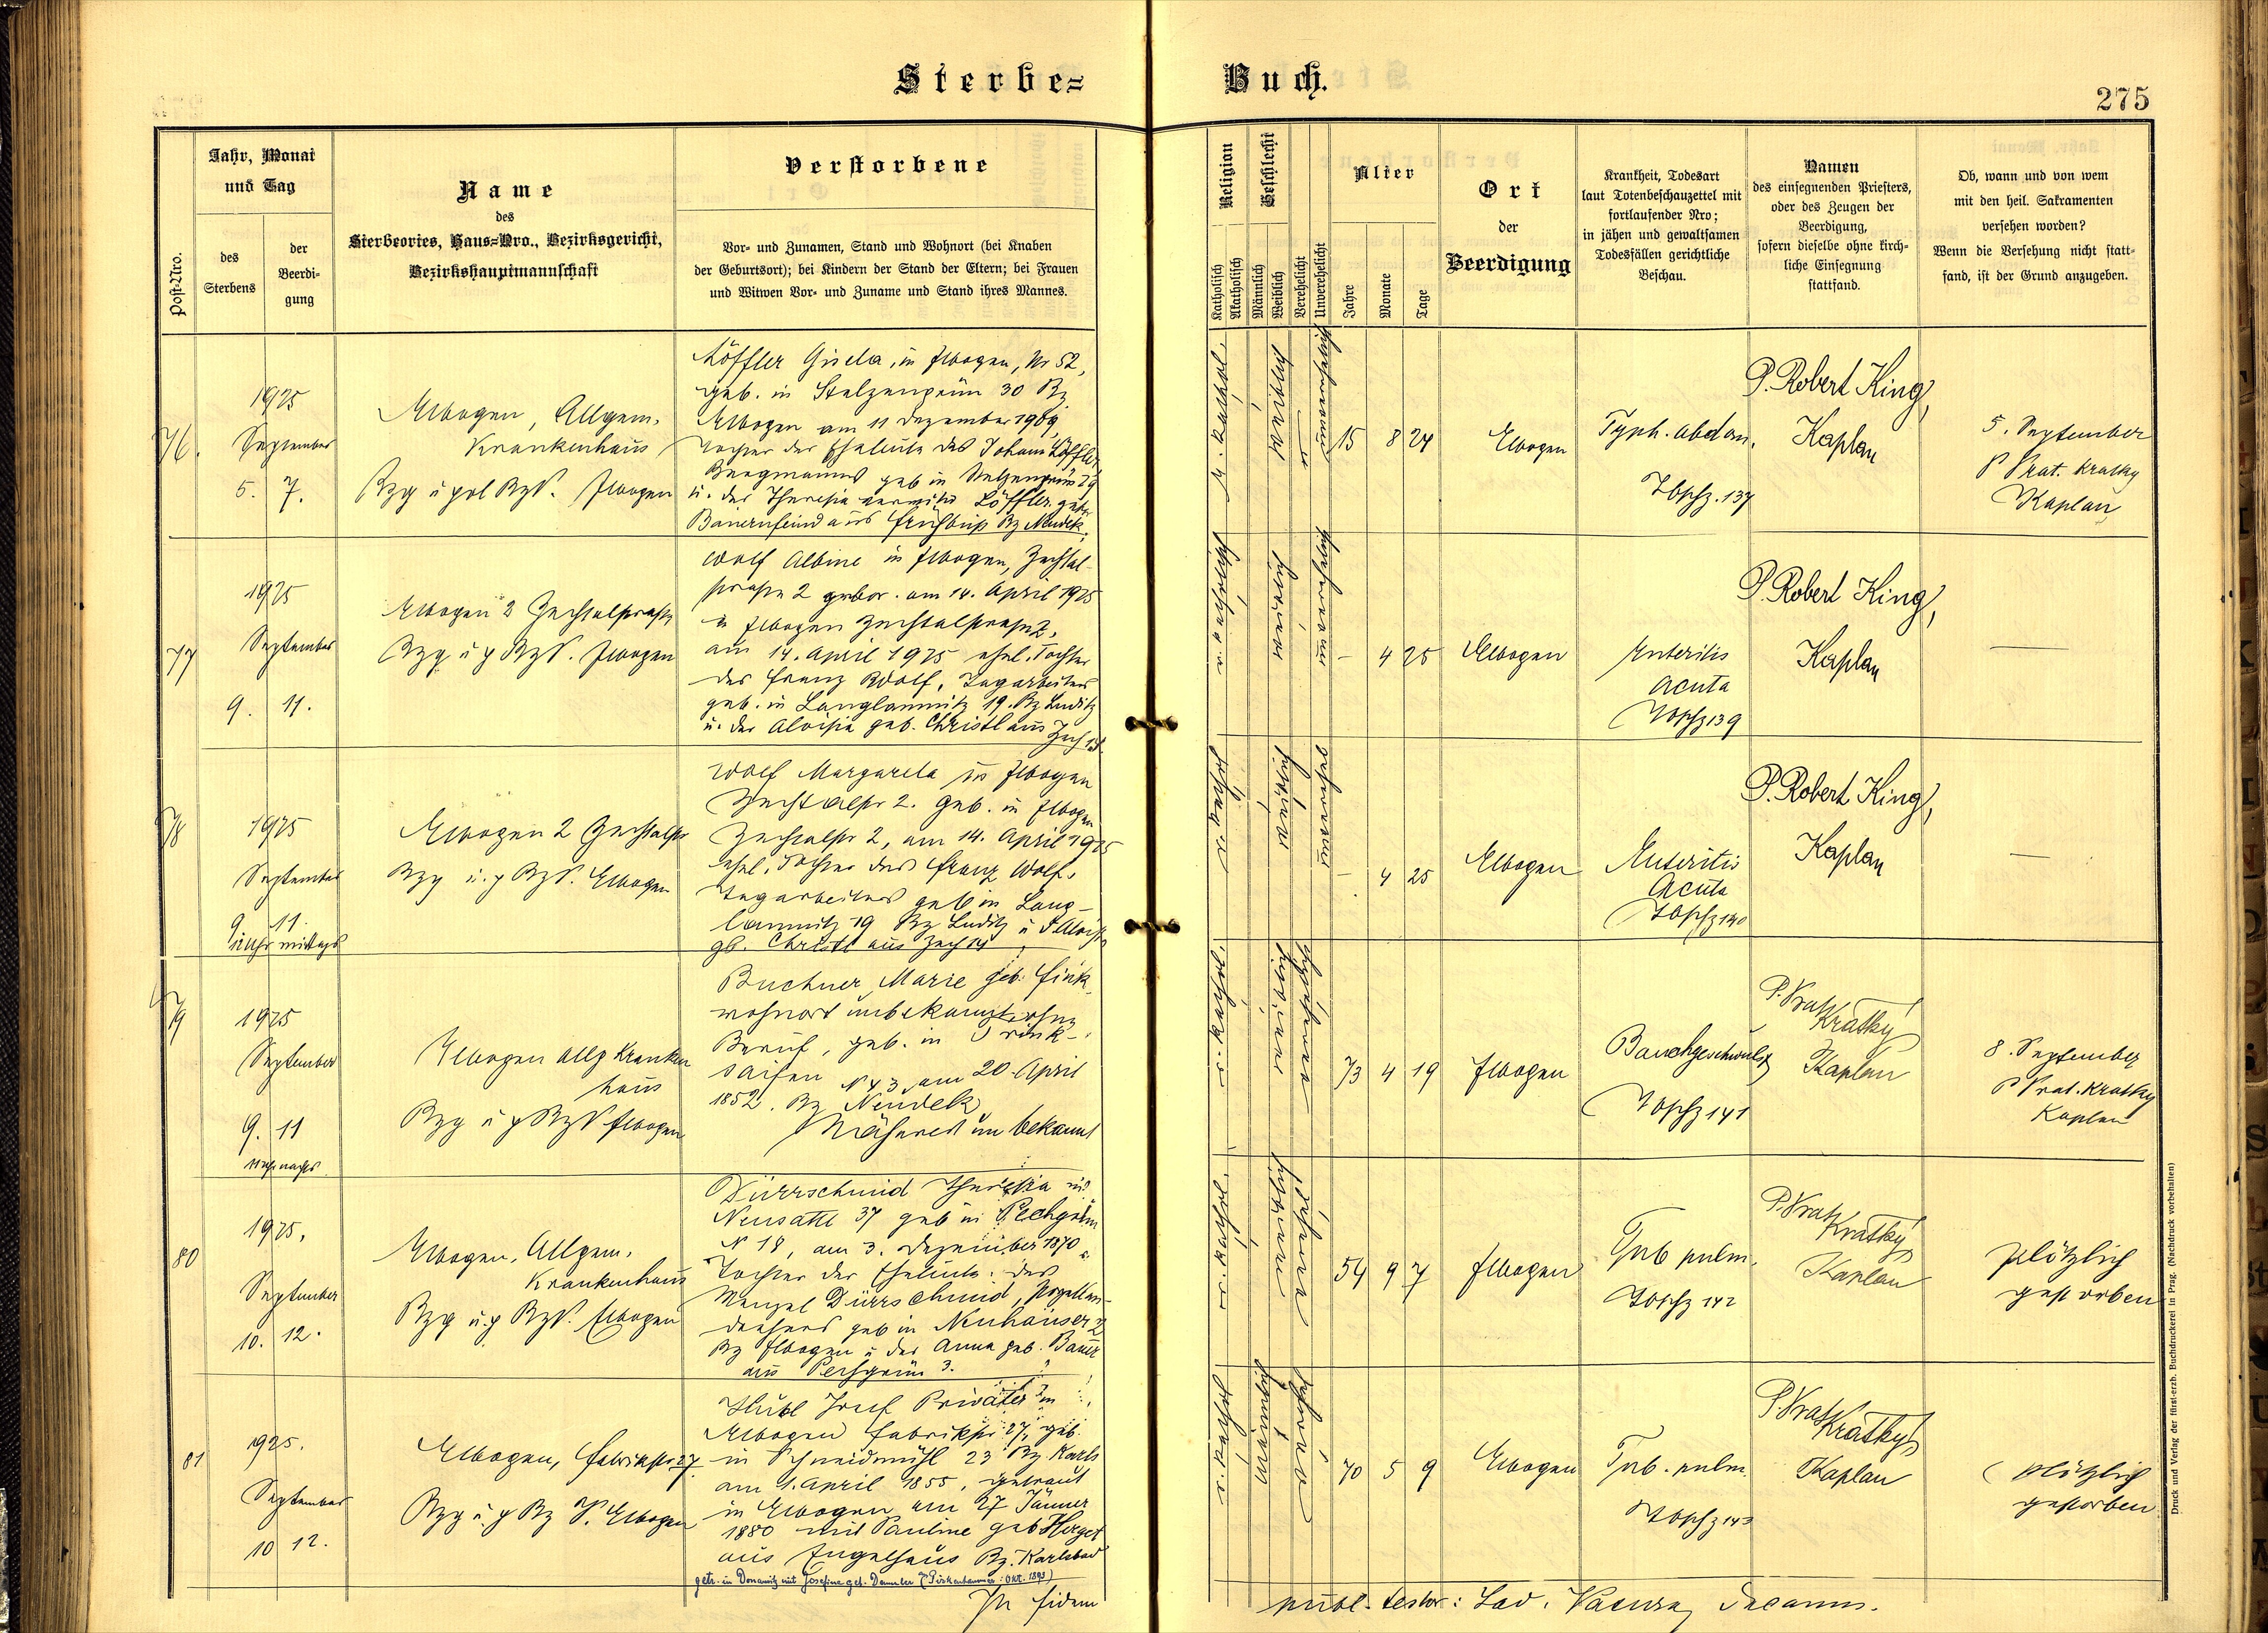 Sterbe-
Buch.
275
Post-Nro.
Jahr, Monat
und Tag
des
Sterbens
der
Beerdi-
gung
Name
des
Sterbeortes, Haus-Nro., Bezirksgericht,
Bezirkshauptmannschaft
Verstorbene
Vor- und Zunamen, Stand und Wohnort (bei Knaben
der Geburtsort); bei Kindern der Stand der Eltern; bei Frauen
und Witwen Vor- und Zuname und Stand ihres Mannes.
Religion
Katholisch
Akatholisch
Geschlecht
Männlich
Weiblich
Verehelicht
Unverehelicht
Alter
Jahre
Monate
Tage
Ort
der
Beerdigung
Krankheit, Todesart
laut Totenbeschauzettel mit
fortlaufender Nro;
in jähen und gewaltsamen
Todesfällen gerichtliche
Beschau.
Namen
des einsegnenden Priesters,
oder des Zeugen der
Beerdigung,
sofern dieselbe ohne kirch-
liche Einsegnung
stattfand.
Ob, wann und von wem
mit den heil. Sakramenten
versehen worden?
Wenn die Versehung nicht statt-
fand, ist der Grund anzugeben.
76.
1925
September
5. 7.
Elbogen, Allgem.
Krankenhaus
Bzg u pol BzV. Elbogen
Löffler Gisela, in Elbogen, Nr 52,
geb. in Stelzengrün 30 Bz
Elbogen am 11 Dezember 1909,
Tochter der Eheleute des Johann Löffler,
Bergmanns geb in Stelzengrün 29
u. der Theresia Löffler geb.
Bauernfeind aus Frühbuß Bz Neudek.
r. kathol.
weiblich
unverehelicht
15 8 24
Elbogen
Typh. abdom.
Tbschz. 137
P. Robert King,
Kaplan
5. September
P Vrat. Kratky
Kaplan
77
1925
September
9. 11.
Elbogen 2 Zechtalstraße
Bzg u p BzV. Elbogen
Wolf Albine in Elbogen, Zechtal-
straße 2 gebor. am 14. April 1925
in Elbogen Zechtalstraße 2,
am 14. April 1925 ehel. Tochter
des Franz Wolf, Tagarbeiters
geb. in Langlamnitz 19. Bz Luditz
u. der Aloisia geb. Christl aus Zech 14
r. katholisch
weiblich
unverehelicht
- 4 25
Elbogen
Enteritis
acuta
Tbschz 139
P. Robert King,
Kaplan
—
78
1925
September
9. 11
12 Uhr mittags
Elbogen 2 Zechtalstr
Bzg u. p BzV. Elbogen
Wolf Margareta in Elbogen
Zechtalstr 2. Geb. in Elbogen
Zechtalstr 2, am 14. April 1925
ehel. Tochter des Franz Wolf,
Tagarbeiters geb in Lang-
lamnitz 19 Bz Luditz u d Aloisia
gb. Christl aus Zech 14
r. kathol
weiblich
- 4 25
Elbogen
Enteritis
Acuta
Tbschz 140
P. Robert King,
Kaplan
—
79
1925
September
9. 11
11 Uhr nachts
Elbogen allg Kranken
haus
Bzg u p BzV Elbogen
Buchner Marie geb. Fink,
wohnort unbekannt, ohne
Beruf, geb. in Trink-
saifen N 43 am 20. April
1852. Bz Neudek
Näheres unbekannt
r. kathol.
weiblich
verehelicht
73 4 19
Elbogen
Bauchgeschwulst
Tbschz 141
P. Vrat
Kratky
Kaplan
8. September
P Vrat. Kratky
Kaplan
80
1925.
September
10. 12.
Elbogen, Allgem.
Krankenhaus
Bzg u. p BzV. Elbogen
Dürrschmid Theresia in
Neusattl 37 geb in Pechgrün
N 18, am 3. Dezember 1870
Tochter der Eheleute des
Wenzel Dürrschmid, Porzellan-
drehers geb in Neuhäuser 2
Bz Elbogen u der Anna geb. Bauer
aus Pechgrün 3.
r. kathol.
weiblich
54 9 7
Elbogen
Tub pulm.
Tbschz 142
P. Vrat
Kratky
Kaplan
plötzlich
gestorben
81
1925.
September
10 12.
Elbogen, Fabrikstr 27
Bzg u. p Bz V. Elbogen
Hübl Josef Privatier in
Elbogen Fabrikstr. 27, geb.
in Schneidmühl 23 Bz Karls
am 1. April 1855, getraut
in Elbogen am 27 Jänner
1880 mit Pauline geb Herget
aus Engelhaus Bz. Karlsbad
getr. in Donawitz mit Josefine geb. Demmler (Pirkenhammer: Okt. 1893)
r. kathol
männlich
70 5 9
Elbogen
Tub. pulm.
Tbschz 143
P. Vrat
Kratky
Kaplan
plötzlich
gestorben
In fidem
publ. testor: Lad. Vacura, Decanus.
Druck und Verlag der fürst-erzb. Buchdruckerei in Prag. (Nachdruck vorbehalten)